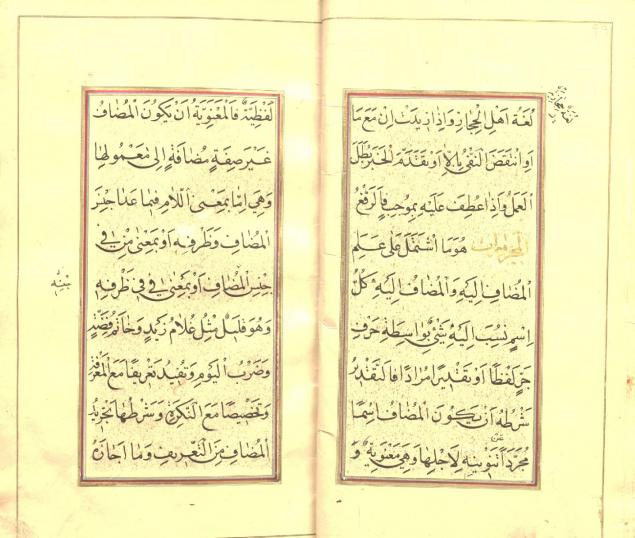 لُغَةُ اَهْلِ الْحِجَازِ وَاِذَا زِيدَتْ اِنْ مَعَ مَا
اَوِ انْتَقَضَ النَّفْيُ بِاِلَّا اَوْ تَقَدَّمَ الْخَبَرُ بَطَلَ
الْعَمَلُ وَاِذَا عُطِفَ عَلَيْهِ بِمُوجِبٍ فَالرَّفْعُ
الْمَجْرُورَاتُ هُوَ مَا اشْتَمَلَ عَلَى عَلَمِ
الْمُضَافِ اِلَيْهِ وَالْمُضَافُ اِلَيْهِ كُلُّ
اِسْمٍ نُسِبَ اِلَيْهِ شَيْءٌ بِوَاسِطَةِ حَرْفِ
جَرٍّ لَفْظًا اَوْ تَقْدِيرًا مُرَادًا فَالتَّقْدِيرُ
شَرْطُهُ اَنْ يَكُونَ الْمُضَافُ اِسْمًا
مُجَرَّدًا عَنْ تَنْوِينِهِ لِاَجْلِهَا وَهِيَ مَعْنَوِيَّةٌ وَ
لَفْظِيَّةٌ فَالْمَعْنَوِيَّةُ اَنْ يَكُونَ الْمُضَافُ
غَيْرَ صِفَةٍ مُضَافَةٍ اِلَى مَعْمُولِهَا
وَهِيَ اِمَّا بِمَعْنَى اللَّامِ فِيمَا عَدَا جِنْسَ
الْمُضَافِ وَظَرْفِهِ اَوْ بِمَعْنَى مِنْ فِي
جِنْسِ الْمُضَافِ اَوْ بِمَعْنَى فِي فِي ظَرْفِهِ
وَهُوَ قَلِيلٌ مِثْلُ غُلَامُ زَيْدٍ وَخَاتَمُ فِضَّةٍ
وَضَرْبُ الْيَوْمِ وَتُفِيدُ تَعْرِيفًا مَعَ الْمَعْرِفَةِ
وَتَخْصِيصًا مَعَ النَّكِرَةِ وَشَرْطُهَا تَجْرِيدُ
الْمُضَافِ مِنَ التَّعْرِيفِ وَمَا اَجَازَهُ